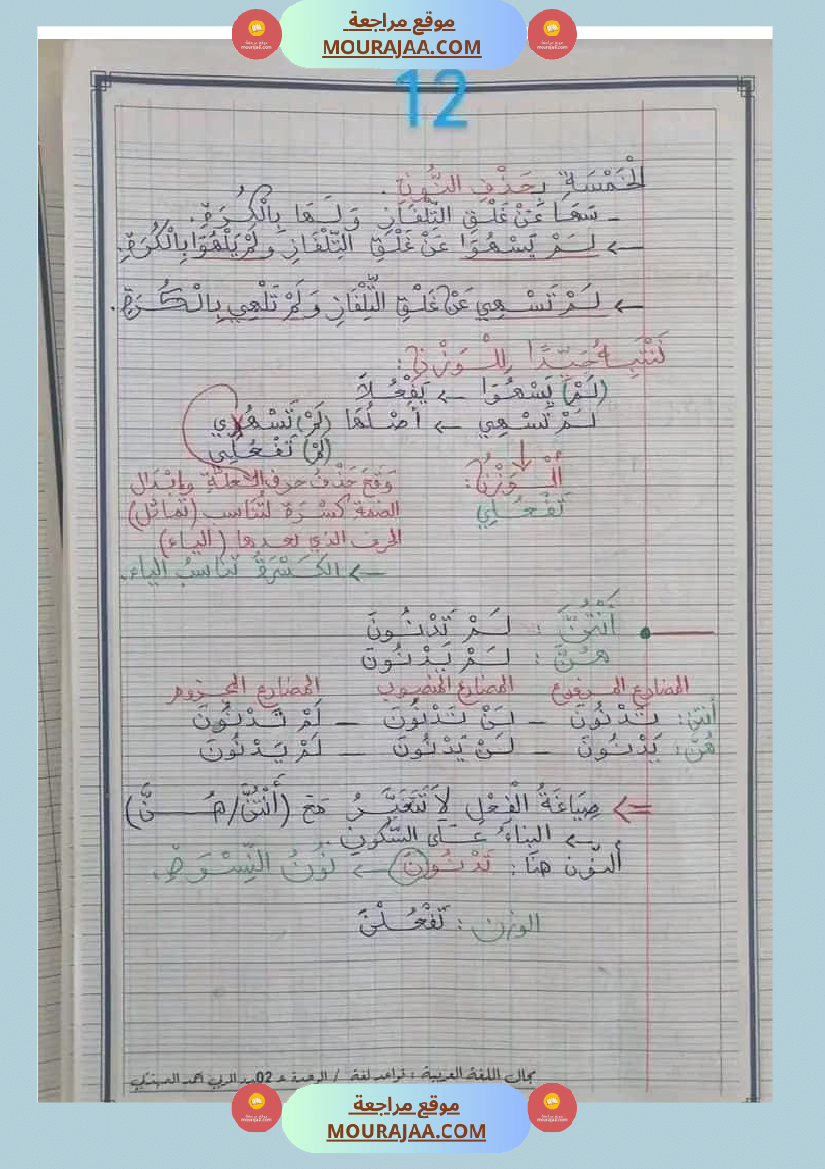 موقع مراجعة
MOURAJAA.COM
12
الْخَمْسَةِ بِحَذْفِ النُّونِ.
- سَهَا عَنْ غَلْقِ التِّلْفَازِ وَلَهَا بِالْكُرَةِ.
← لَمْ يَسْهُوَا عَنْ غَلْقِ التِّلْفَازِ وَلَمْ يَلْهُوَا بِالْكُرَةِ.
← لَمْ تَسْهِي عَنْ غَلْقِ التِّلْفَازِ وَلَمْ تَلْهِي بِالْكُرَةِ.
نَنْتَبِهُ جَيِّدًا لِلْوَزْنِ:
(لَمْ) يَسْهُوَا ← يَفْعُلَا
لَمْ تَسْهِي ← أَصْلُهَا (لَمْ) تَسْهُوِي
(لَمْ) تَفْعُلِي
الْوَزْنُ:
تَفْعُلِي
وَقَعَ حَذْفُ حرف العلّة وإبْدَال
الضمة كَسْرَة لتُنَاسب (تماثل)
الحرف الذي بعدها (الياء)
← الكَسْرَةُ تُنَاسبُ الياء.
أَنْتُنَّ : لَمْ تَدْنُونَ
هُنَّ : لَمْ يَدْنُونَ
المضارع المرفوع المضارع المنصوب المضارع المجزوم
أنتنّ: تَدْنُونَ - لَنْ تَدْنُونَ - لَمْ تَدْنُونَ
هُنَّ: يَدْنُونَ - لَنْ يَدْنُونَ - لَمْ يَدْنُونَ
⇐ صِيَاغَةُ الْفِعْلِ لَا تَتَغَيَّرُ مَعَ (أَنْتُنَّ/هُنَّ)
← البناءُ عَلَى السُّكُونِ.
النُّون هنا: تَدْنُونَ ← نُونُ النِّسْوَةِ.
الوزن: تَفْعُلْنَ
مجال اللغة العربية : قواعد لغة / الوحدة عـ02ـدد
موقع مراجعة
MOURAJAA.COM